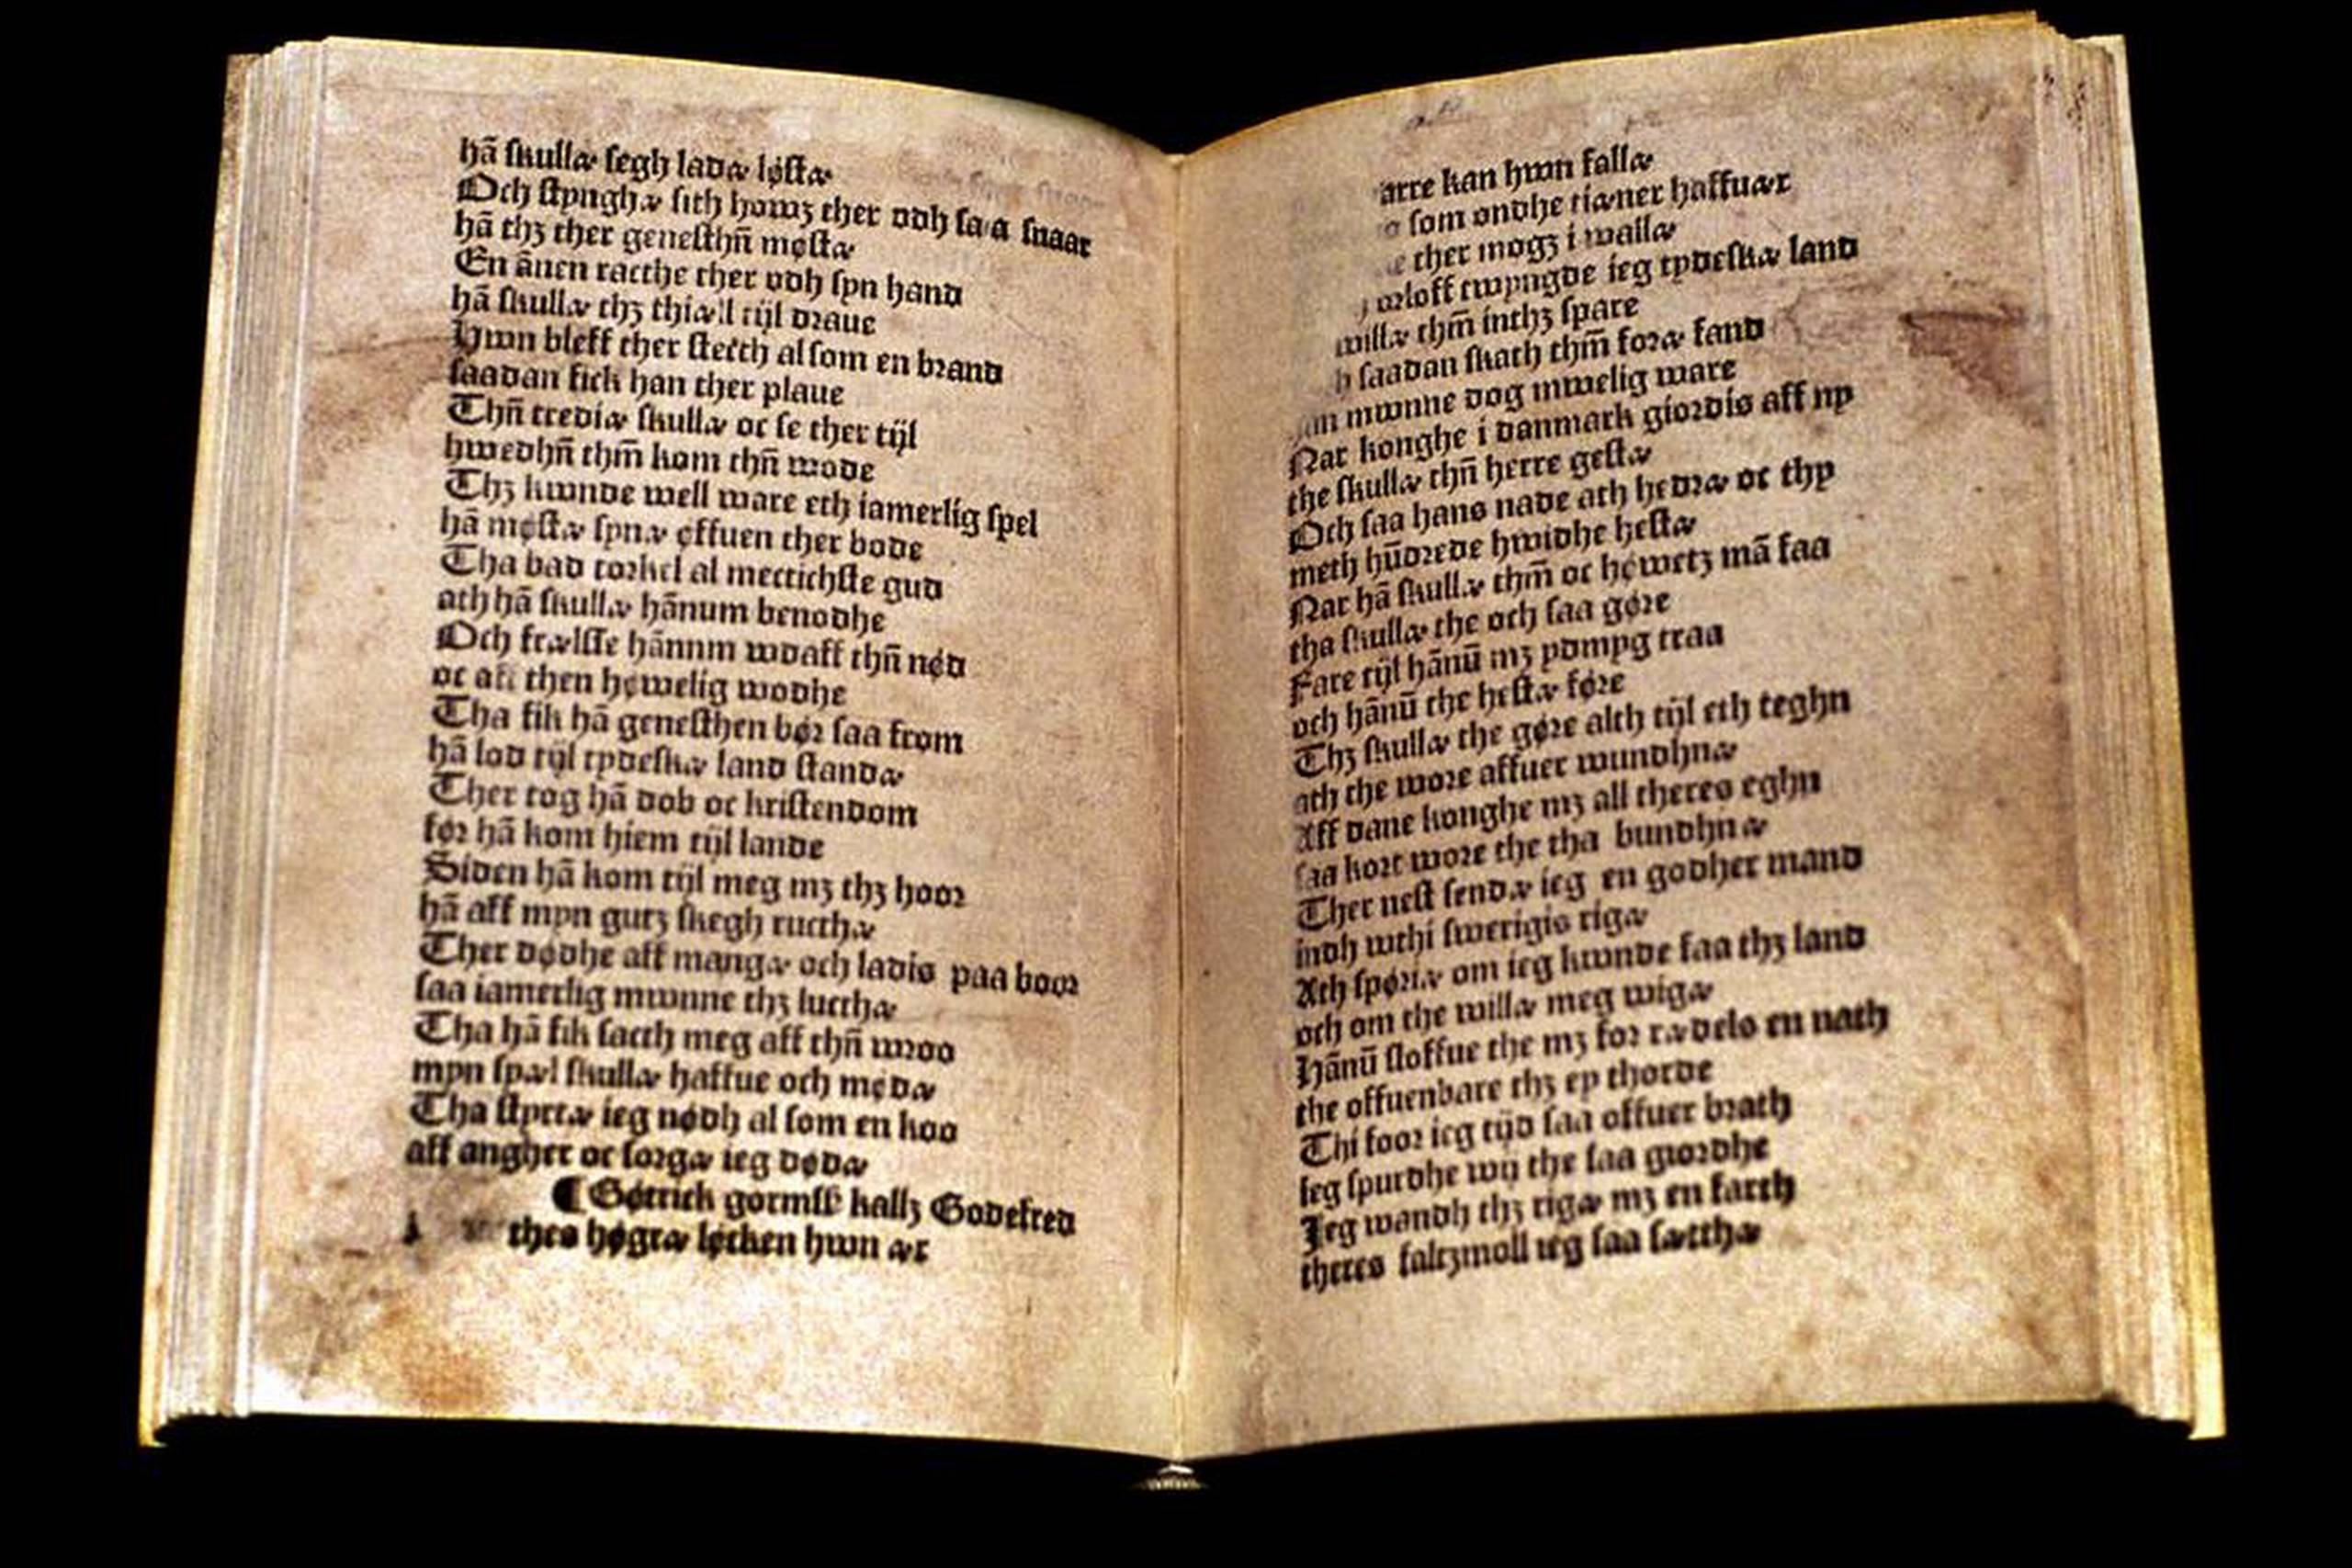 hã skullæ segh ladæ løstæ
Och stynghæ sith howꝫ ther vdh saa snaar
hã thꝫ ther genesthn̄ møstæ
En ãnen racthe ther vdh syn hand
hã skullæ thꝫ thiæll tijl draue
Hwn bleff ther stecth al som en brand
saadan fick han ther plaue
Thn̄ trediæ skullæ oc se ther tijl
hwedhn̄ thm̄ kom thn̄ wode
Thꝫ kwnde well ware eth iamerlig spel
hã møstæ synæ øffuen ther bode
Tha bad torkel al mectichste gud
ath hã skullæ hãnum benodhe
Och frælsse hãnnm wdaff thn̄ nød
oc aff then høwelig wodhe
Tha fik hã genesthen bør saa from
hã lod tijl tydeskæ land standæ
Ther tog hã dob oc kristendom
før hã kom hiem tijl lande
Siden hã kom tijl meg mꝫ thꝫ hoor
hã aff myn gutꝫ skegh ructhæ
Ther dødhe aff mangæ och ladis paa boor
saa iamerlig mwnne thꝫ lucthæ
Tha hã fik sacth meg aff thn̄ wroo
myn spæl skullæ haffue och mødæ
Tha styrtæ ieg nødh al som en koo
aff angher oc sorgæ ieg dødæ
¶ Gøtrick gormsß kallꝫ Godefred
thes høgræ løcken hwn ær
arre kan hwn fallæ
som ondhe tiæner haffuær
ther mogꝫ i wallæ
orloff twyngde ieg tydeskæ land
willæ thm̄ inthꝫ spare
saadan skath thm̄ foræ fand
mwnne dog mwelig ware
Nar konghe i danmark giordis aff ny
the skullæ thn̄ herre gestæ
Och saa hans nade ath hedræ oc thy
meth hūdrede hwidhe hestæ
Nar hã skullæ thm̄ oc høwetꝫ mã faa
tha skullæ the och saa gøre
Fare tijl hãnū mꝫ ydmyg traa
och hãnū the hestæ føre
Thꝫ skullæ the gøre alth tijl eth teghn
ath the wore affuer wundhnæ
Aff dane konghe mꝫ all theres eghn
saa kort wore the tha bundhnæ
Ther nest sendæ ieg en godher mand
indh wthi swerigis rigæ
Ath spøriæ om ieg kwnde faa thꝫ land
och om the willæ meg wigæ
Hãnū sloffue the mꝫ for rædels en nath
the offuenbare thꝫ ey thorde
Thi foor ieg tijd saa offuer brath
ieg spurdhe wij the saa giordhe
Jeg wandh thꝫ rigæ mꝫ en farth
theres saltꝫmoll ieg saa sætthæ